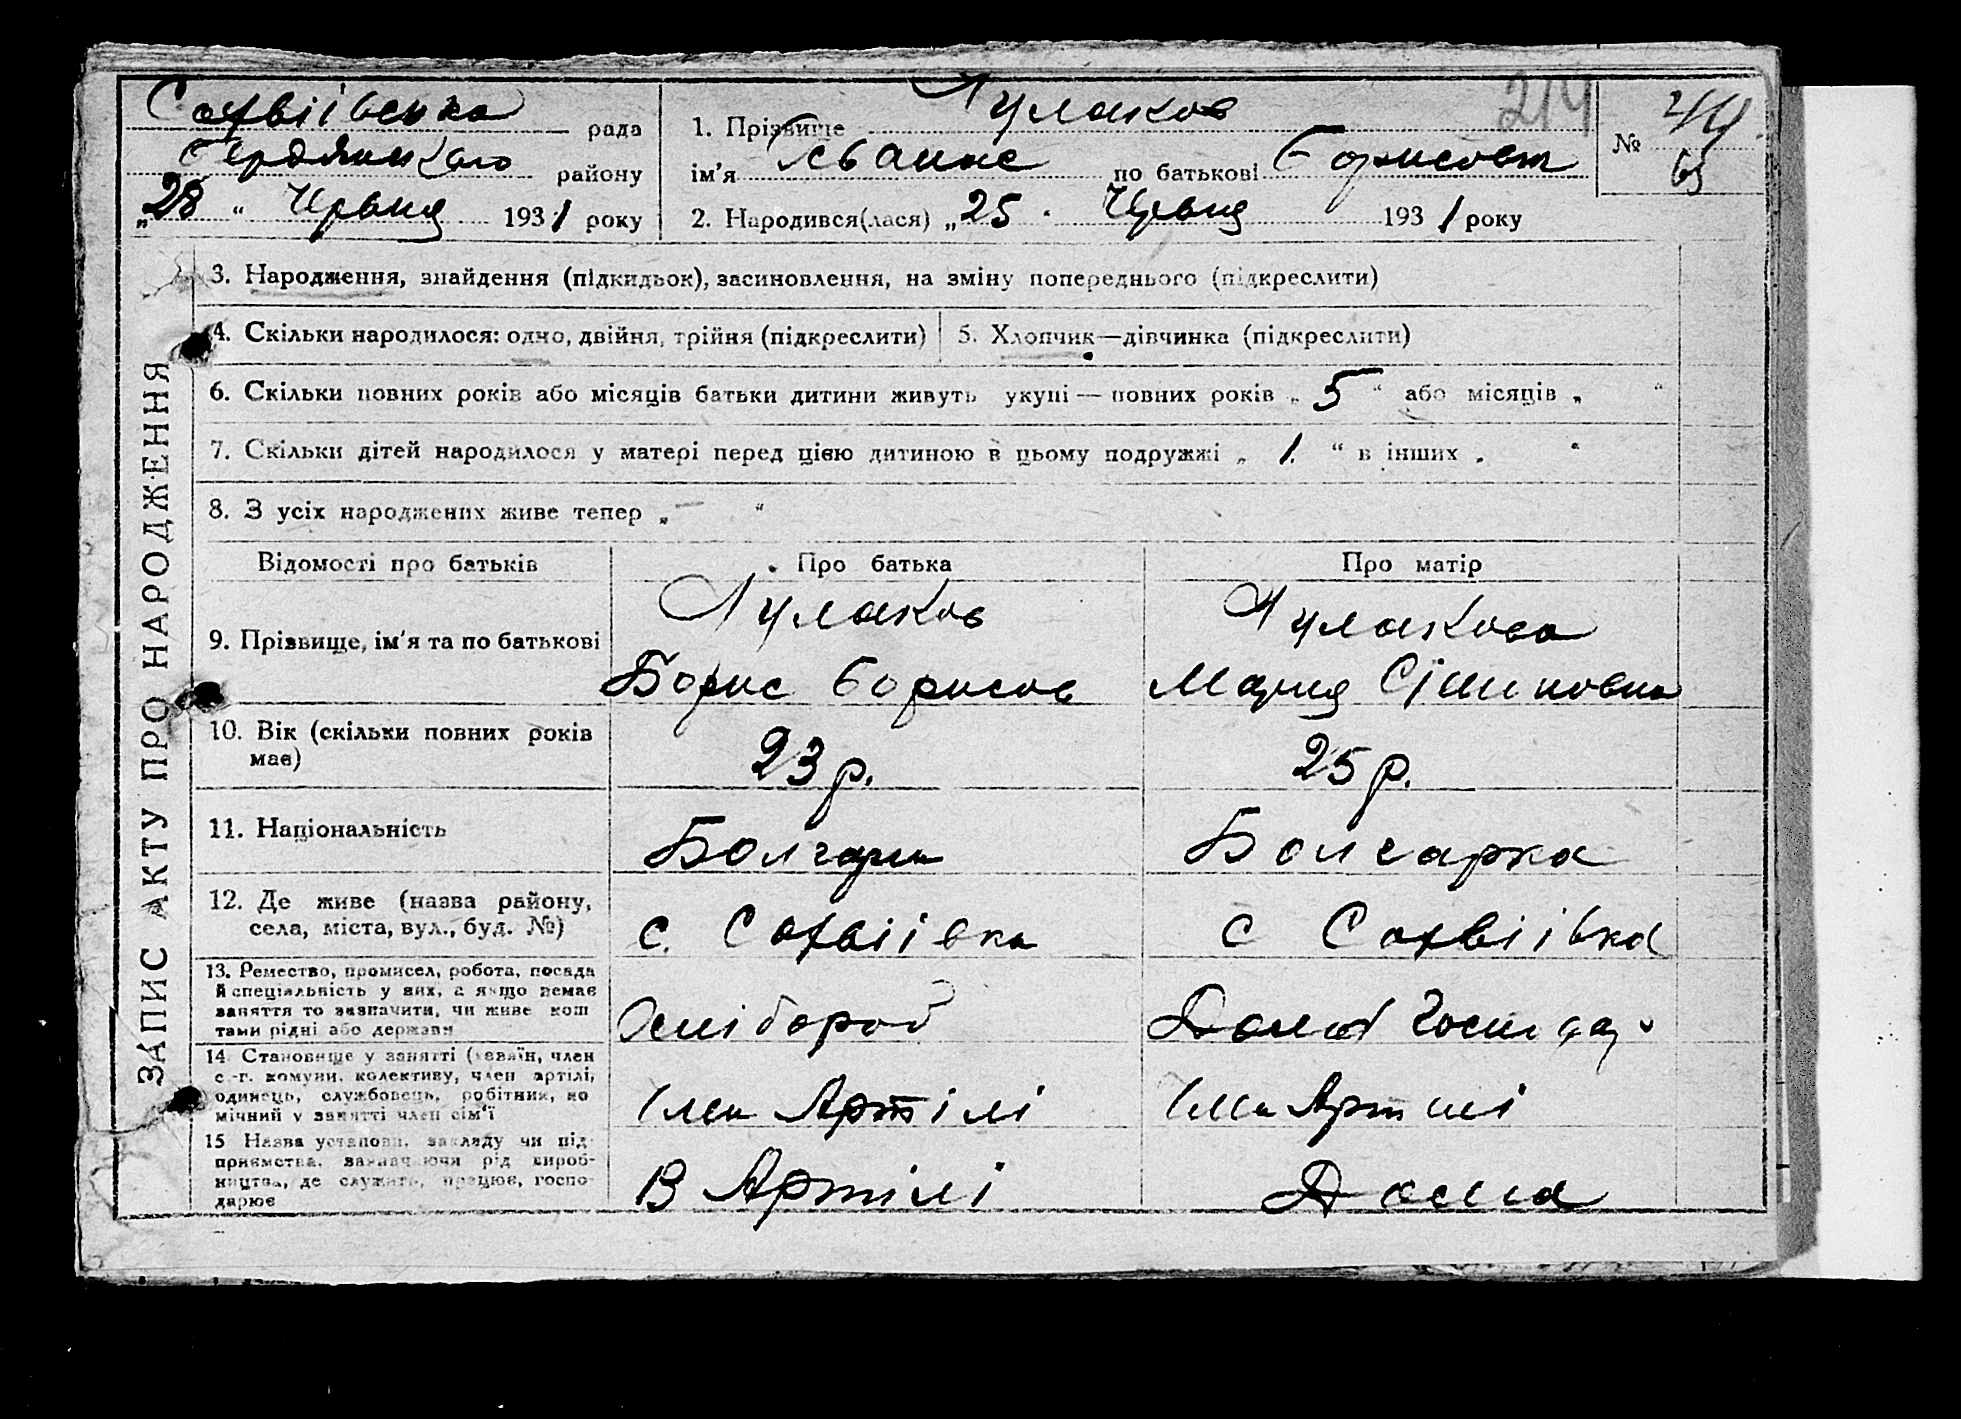 Софвіівська рада
Бердянського району
„28“ Червня 1931 року
1. Прізвище Кулаков
ім’я по батькові Борисов
2. Народився(лася) „25. Червня 1931 року
214
№ 44
63
ЗАПИС АКТУ ПРО НАРОДЖЕННЯ
3. Народження, знайдення (підкидьок), засиновлення, на зміну попереднього (підкреслити)
4. Скільки народилося: одно, двійня, трійня (підкреслити)
5. Хлопчик—дівчинка (підкреслити)
6. Скільки повних років або місяців батьки дитини живуть укупі — повних років „5“ або місяців „ “
7. Скільки дітей народилося у матері перед цією дитиною в цьому подружжі „1.“ в інших „ “
8. З усіх народжених живе тепер „ “
Відомості про батьків Про батька Про матір
9. Прізвище, ім’я та по батькові
Кулаков
Борис Борисов
Кулакова
Мария
10. Вік (скільки повних років має)
23 р. 25 р.
11. Національність
Болгарин Болгарка
12. Де живе (назва району,
села, міста, вул., буд. №)
с. Софвіівка с Софвіівка
13. Ремество, промисел, робота, посада
й спеціяльність у них, а якщо немає
заняття то зазначити, чи живе кош
тами рідні або держави
Хлібороб Дома Господар
14. Становище у занятті (хазяїн, член
с.-г. комуни, колективу, член артілі,
одинець, службовець, робітник, по
мічний у занятті член сім’ї
Член Артілі Член Артилі
15 Назва установи, закладу чи під-
приємства, зазначаючи рід вироб-
ництва, де служить, працює, госпо-
дарює
В Артілі Дома